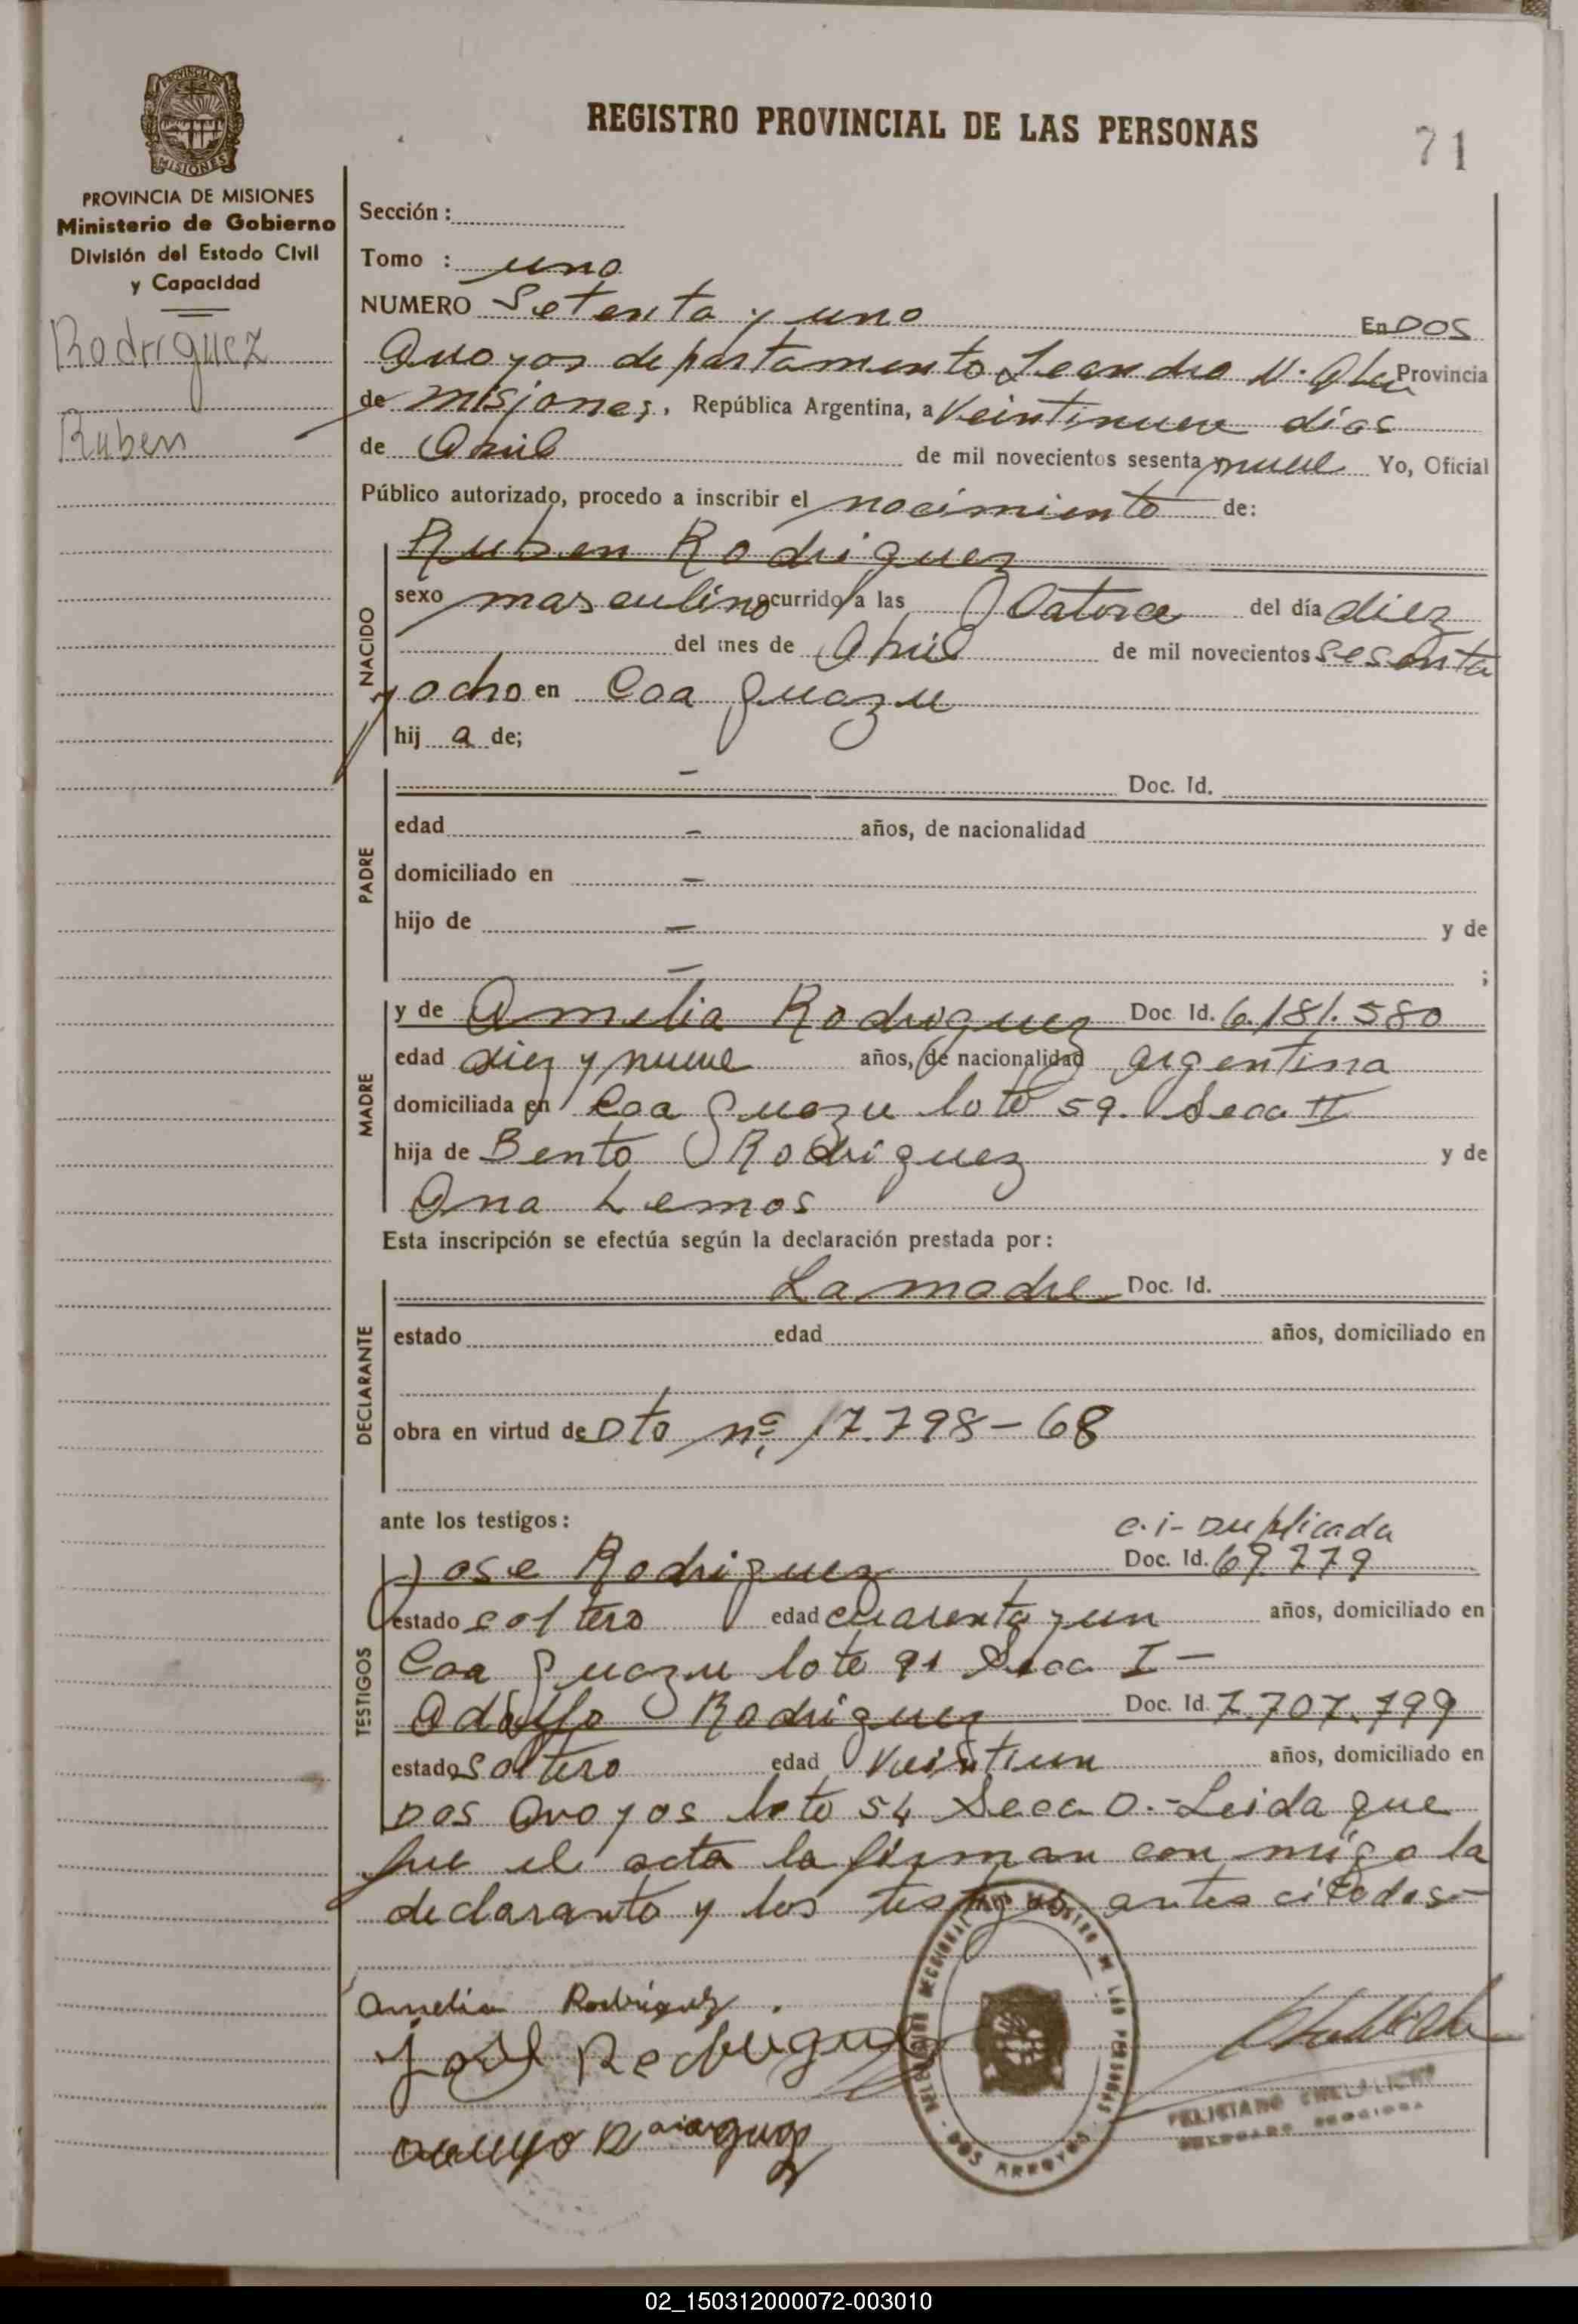 REGISTRO PROVINCIAL DE LAS PERSONAS
71
PROVINCIA DE MISIONES
Ministerio de Gobierno
División del Estado Civil
y Capacidad
Rodriguez
Ruben
Sección :
Tomo : uno
NUMERO Setenta y uno En DOS
Arroyos departamento Leandro N. Alem Provincia
de misiones, República Argentina, a Veintinueve días
de Abril de mil novecientos sesenta y nueve Yo, Oficial
Público autorizado, procedo a inscribir el nacimiento de:
NACIDO
Ruben Rodriguez
sexo masculino ocurrido a las Catorce del día diez
del mes de Abril de mil novecientos sesenta
y ocho en Caa Guazu
hij a de;
PADRE
- Doc. Id.
edad - años, de nacionalidad
domiciliado en -
hijo de - y de
- ;
MADRE
y de Amelia Rodriguez Doc Id. 6.181.580
edad diez y nueve años, de nacionalidad argentina
domiciliada en Caa Guazu lote 59. Secc II
hija de Bento Rodriguez y de
Ana Lemos
Esta inscripción se efectúa según la declaración prestada por:
DECLARANTE
La madre Doc. Id.
estado edad años, domiciliado en
obra en virtud de Dto nº 17.798-68
ante los testigos:
c.i- Duplicada
TESTIGOS
Jose Rodriguez Doc. Id. 69.779
estado soltero edad cuarenta y un años, domiciliado en
Caa Guazu lote 91 Secc I-
Adolfo Rodriguez Doc. Id. 7.707.799
estado soltero edad veintiun años, domiciliado en
Dos Arroyos lote 54 Secc D.- Leida que
fue el acta la firman con migo la
declarante y los testigos antes citados-
Amelia Rodriguez.
José Rodriguez
Rodriguez
DOS ARROYOS
FELICIANO